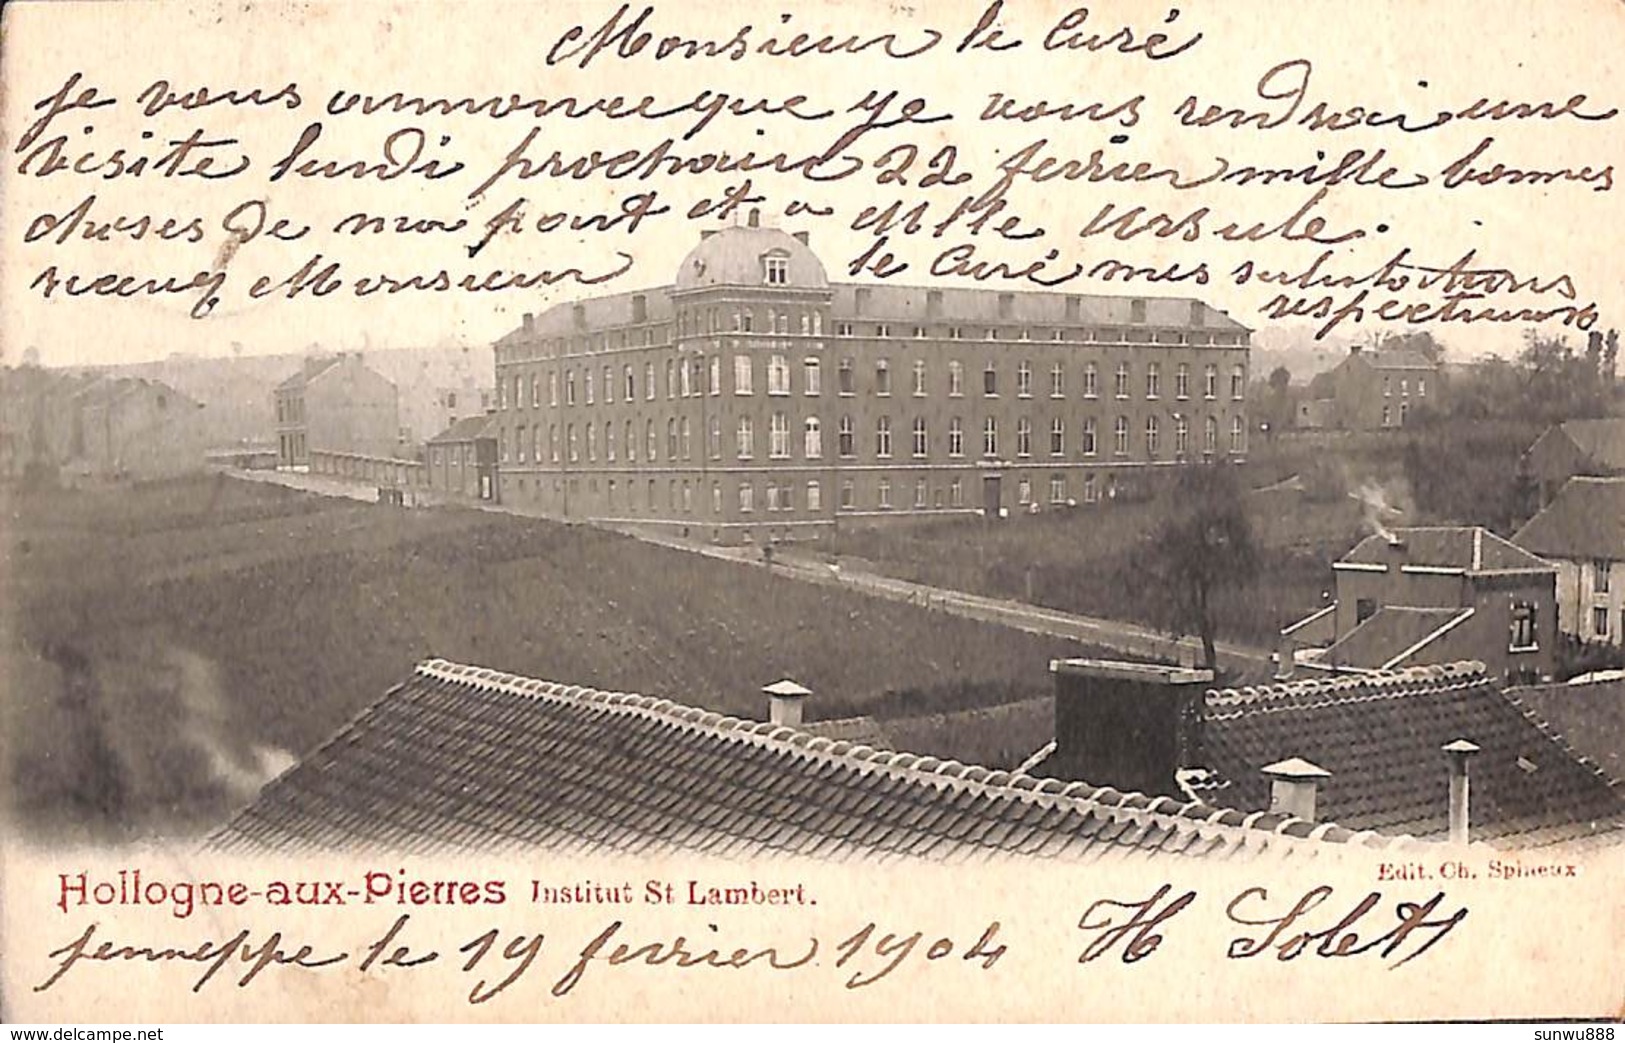 Monsieur le Curé
je vous annoncee que je vous rendrai une
visite lundi prochaire 22 fevrier mille bonnes
choses de ma part et a Mlle Ursule.
Monsieur le Curé mes salutations
respectueuse
Hollogne-aux-Pierres Institut St Lambert.
Edit. Ch. Spineux
jemmeppe le 19 fevrier 1904 H Solet
sunwu888